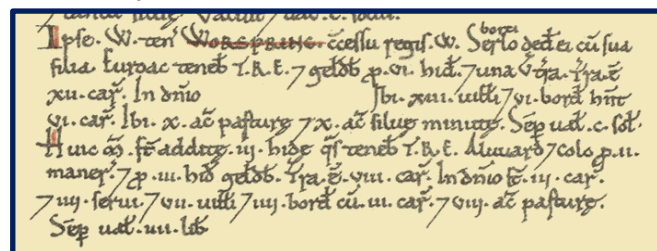 Ipse . W . ten̄ WORSPRING c̄cessu regis . W . Serlo borci ded̄ ei cū sua
filia . Euroac teneb̄ T.R.E. ⁊ geld̄b ꝓ . vi . hid̄ . ⁊ una v̄ tr̄a . Tr̄a . ē
xii . car̄ . In dn̄io Ibi . xiii . uilli ⁊ vi . bord̄ hn̄t
vi . car̄ . Ibi . x . ac̄ pasturę ⁊ x . ac̄ siluę minutę . Sēp ual̄ . c . sol̄ .
Huic m̄ . st̄ additę . iii . hidę q̄s teneb̄ T.R.E. Aluuard ⁊ colo ꝓ . ii .
maner̄ ⁊ ꝓ . iii . hid̄ geld̄b . Tr̄a . ē . viii . car̄ . In dn̄io st̄ . iii . car̄ .
⁊ iiii . serui . ⁊ vii . uilli ⁊ iiii . bord̄ cū . iii . car̄ . ⁊ viii . ac̄ pasturę .
Sēp ual̄ . iii . lib̄